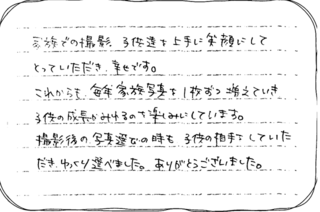 家族での撮影 子供達を上手に笑顔にして
とっていただき、幸せです。
これからも、毎年家族写真を1枚ずつ増えていき
子供の成長がみれるのを楽しみにしています。
撮影後の写真選びの時も 子供の相手をしていた
だき、ゆっくり選べました。ありがとうございました。